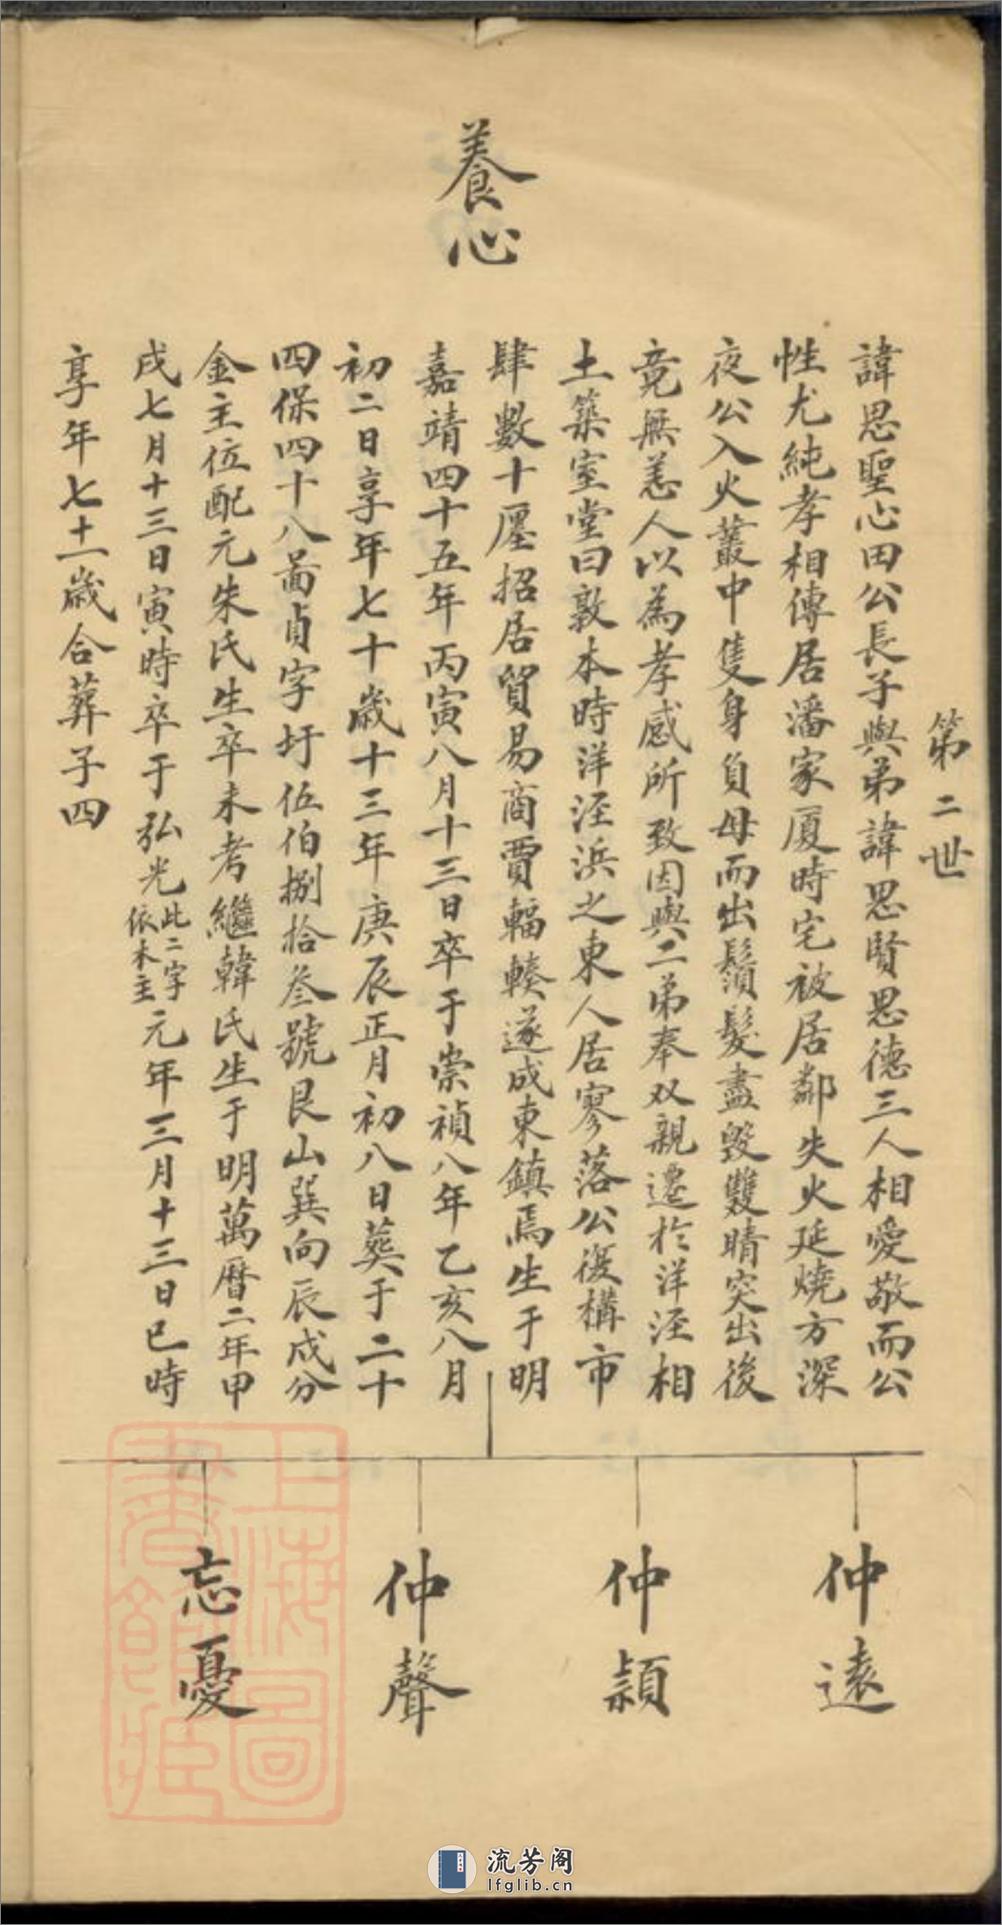 第二世
養心
諱思聖心田公長子與弟諱思賢思德三人相愛敬而公
性尤純孝相傳居潘家厦時宅被居鄰失火延燒方深
夜公入火叢中隻身負母而出鬚髮盡毀雙睛突出後
竟無恙人以為孝感所致因與二弟奉双親遷於洋涇相
土築室堂曰敦本時洋涇浜之東人居寥落公復構市
肆數十廛招居貿易商賈輻輳遂成東鎮焉生于明
嘉靖四十五年丙寅八月十三日卒于崇禎八年乙亥八月
初二日享年七十歲十三年庚辰正月初八日葬于二十
四保四十八啚貞字圩伍伯捌拾叁號艮山巽向辰戍分
金主位配元朱氏生卒未考繼韓氏生于明萬曆二年甲
戌七月十三日寅時卒于弘光此二字依木主元年三月十三日巳時
享年七十二歲合葬子四
仲遠
仲頴
仲聲
忘憂
上海圖書館藏
流芳阁
lfglib.cn